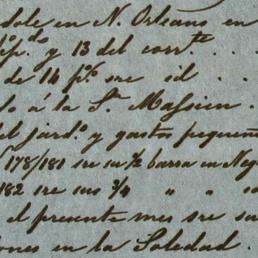 dole en N. Orleans en
y 13 del corr.te . . .
de 14 p.s sre id . .
lo á la S.ra Massieu .
el jard.o y gastos pequeñ
178/181 sre su 1/2 barra en Neg
182 sre sus 3/4 " " "
el presente mes sre su
ones en la Soledad .